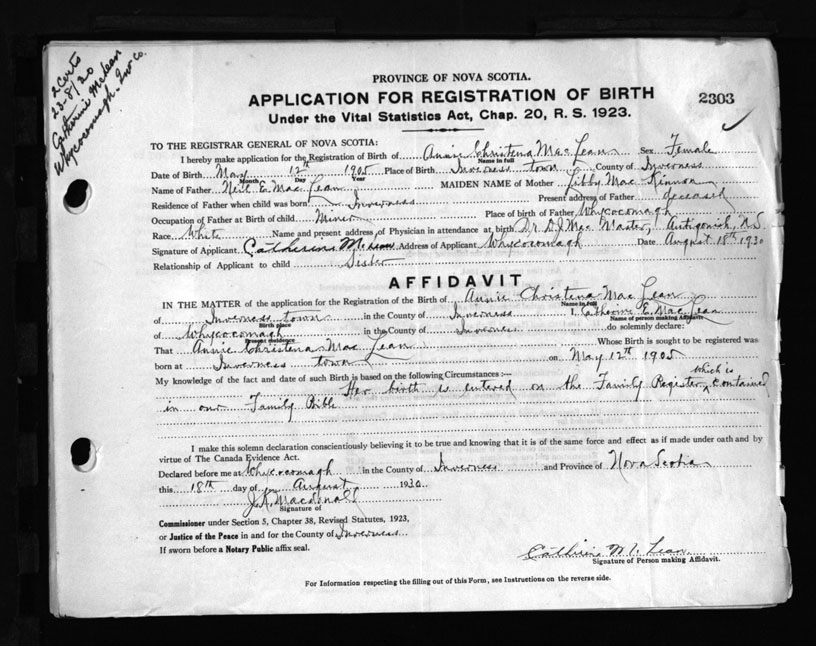 2 Certs
23-8/20
Catherine McLean
Whycocomagh - Inv Co.
PROVINCE OF NOVA SCOTIA.
APPLICATION FOR REGISTRATION OF BIRTH
2303
Under the Vital Statistics Act, Chap. 20, R. S. 1923.
TO THE REGISTRAR GENERAL OF NOVA SCOTIA:
I hereby make application for the Registration of Birth of Annie Christena Mac Lean Sex Female
Name in full
Date of Birth May 12th 1905 Place of Birth Inverness town County of Inverness
Month Day Year
Name of Father Neil E. Mac Lean MAIDEN NAME of Mother Libby Mac Kinnon
Residence of Father when child was born Inverness Present address of Father deceased
Occupation of Father at Birth of child Miner Place of birth of Father Whycocomagh
Race White Name and present address of Physician in attendance at birth Dr. D. J. Mac Master, Antigonish, N.S.
Signature of Applicant Catherine McLean Address of Applicant Whycocomagh Date August 18th 1930
Relationship of Applicant to child Sister
AFFIDAVIT
IN THE MATTER of the application for the Registration of the Birth of Annie Christena Mac Lean
Name in full
of Inverness town in the County of Inverness I, Catherine E. Mac Lean
Birth place Name of person making Affidavit
of Whycocomagh in the County of Inverness do solemnly declare:
Present residence
That Annie Christena Mac Lean Whose Birth is sought to be registered was
born at Inverness town on May 12th 1905
My knowledge of the fact and date of such Birth is based on the following Circumstances:—
Her birth is entered on the Family Register, which is contained
in our Family Bible
I make this solemn declaration conscientiously believing it to be true and knowing that it is of the same force and effect as if made under oath and by
virtue of The Canada Evidence Act.
Declared before me at Whycocomagh in the County of Inverness and Province of Nova Scotia
this 18th day of August 1930
J. A. Macdonald
Signature of
Commissioner under Section 5, Chapter 38, Revised Statutes, 1923,
or Justice of the Peace in and for the County of Inverness
If sworn before a Notary Public affix seal.
Catherine McLean
Signature of Person making Affidavit.
For Information respecting the filling out of this Form, see Instructions on the reverse side.